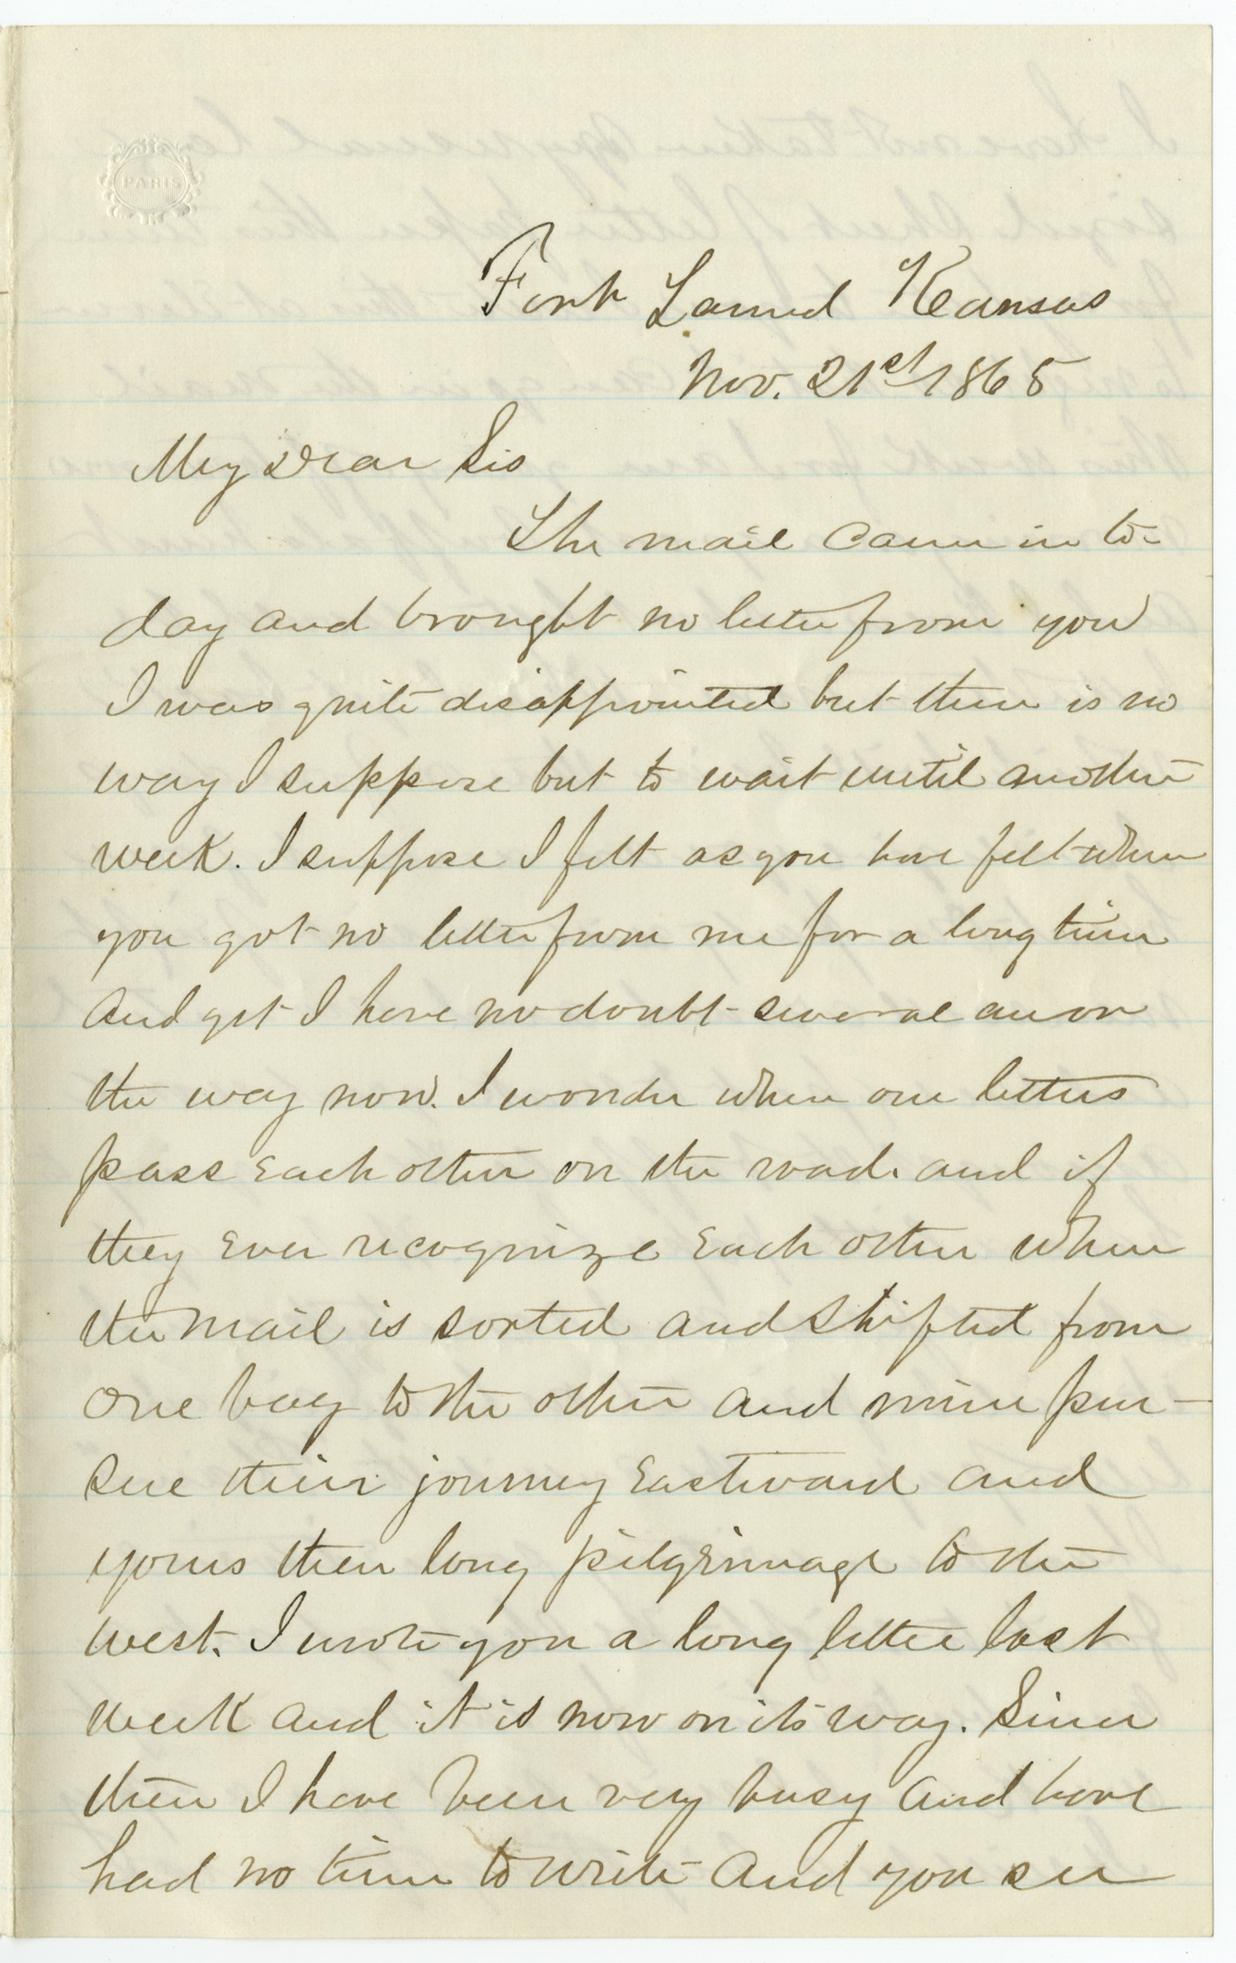 PARIS
Fort Larned Kansas
Nov. 21st 1865
My Dear Sis
The mail came in to-
day and brought no letter from you
I was quite disappointed but there is no
way I suppose but to wait until another
week. I suppose I felt as you have felt when
you got no letter from me for a long time
and yet I have no doubt several are on
the way now. I wonder when our letters
pass Each other on the road. and if
they Ever recognize Each other when
the mail is sorted and shifted from
one bag to the other and mine pur-
sue their journey Eastward and
yours their long pilgrimage to the
west. I wrote you a long letter last
week and it is now on its way. Since
then I have been very busy and have
had no time to write and you see